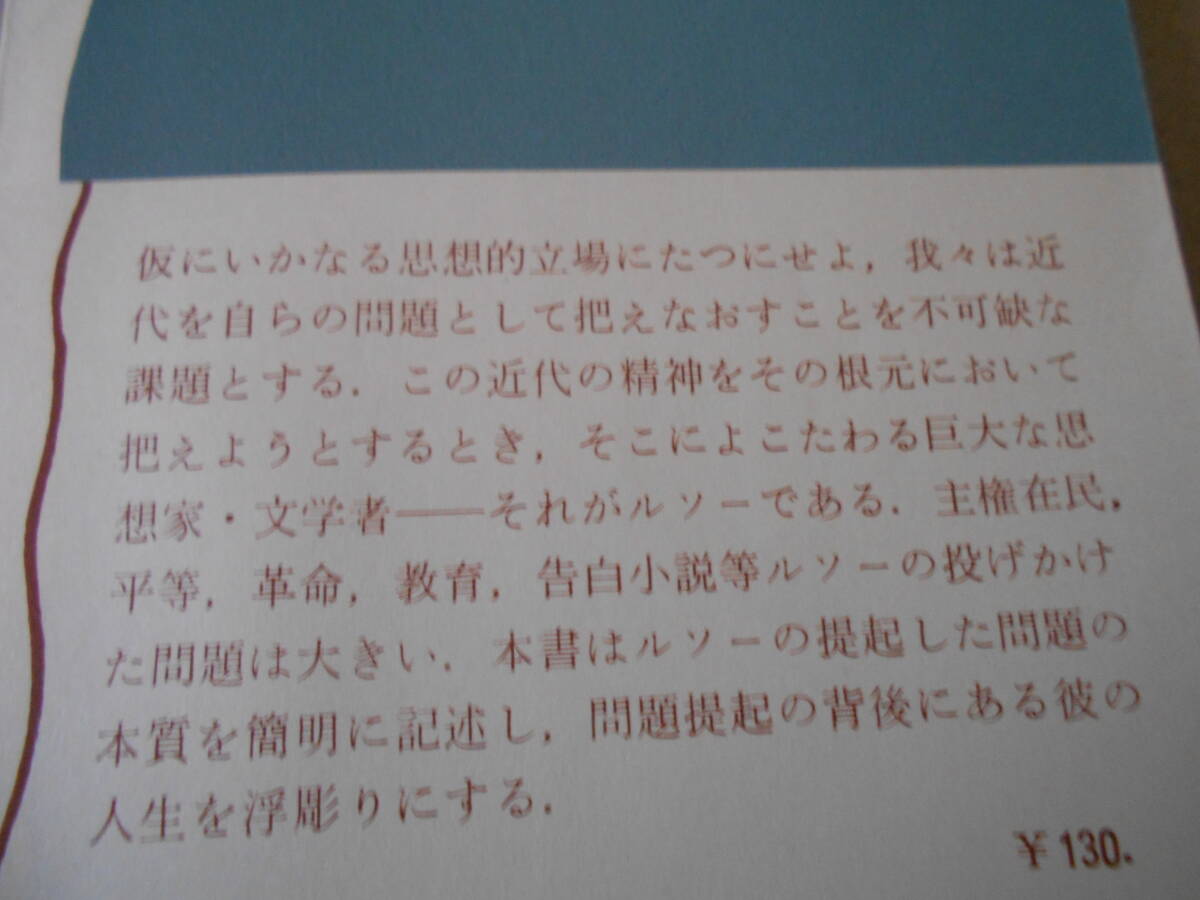 仮にいかなる思想的立場にたつにせよ，我々は近
代を自らの問題として把えなおすことを不可缺な
課題とする．この近代の精神をその根元において
把えようとするとき，そこによこたわる巨大な思
想家・文学者――それがルソーである．主権在民，
平等，革命，教育，告白小説等ルソーの投げかけ
た問題は大きい．本書はルソーの提起した問題の
本質を簡明に記述し，問題提起の背後にある彼の
人生を浮彫りにする．
￥130.